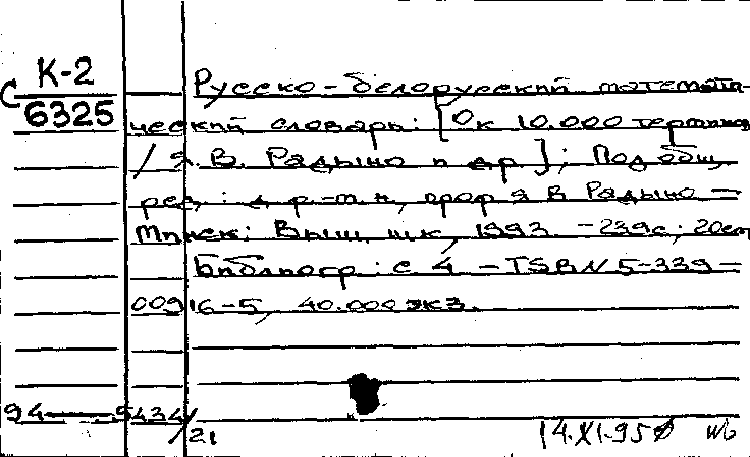 К-2
С 6325
Русско-белорусский математи-
ческий словарь: [Ок 10.000 терминов
/ Я. В. Радыно и др]; Под общ,
ред,: д. р-м. н, проф Я В Радыно —
Минск; Выш, шк, 1993. -239с; 20см
Библиогр: с 4 - ISBN 5-339-
00916-5, 40.000 экз.
94 — 5434/
21
14.XI.95